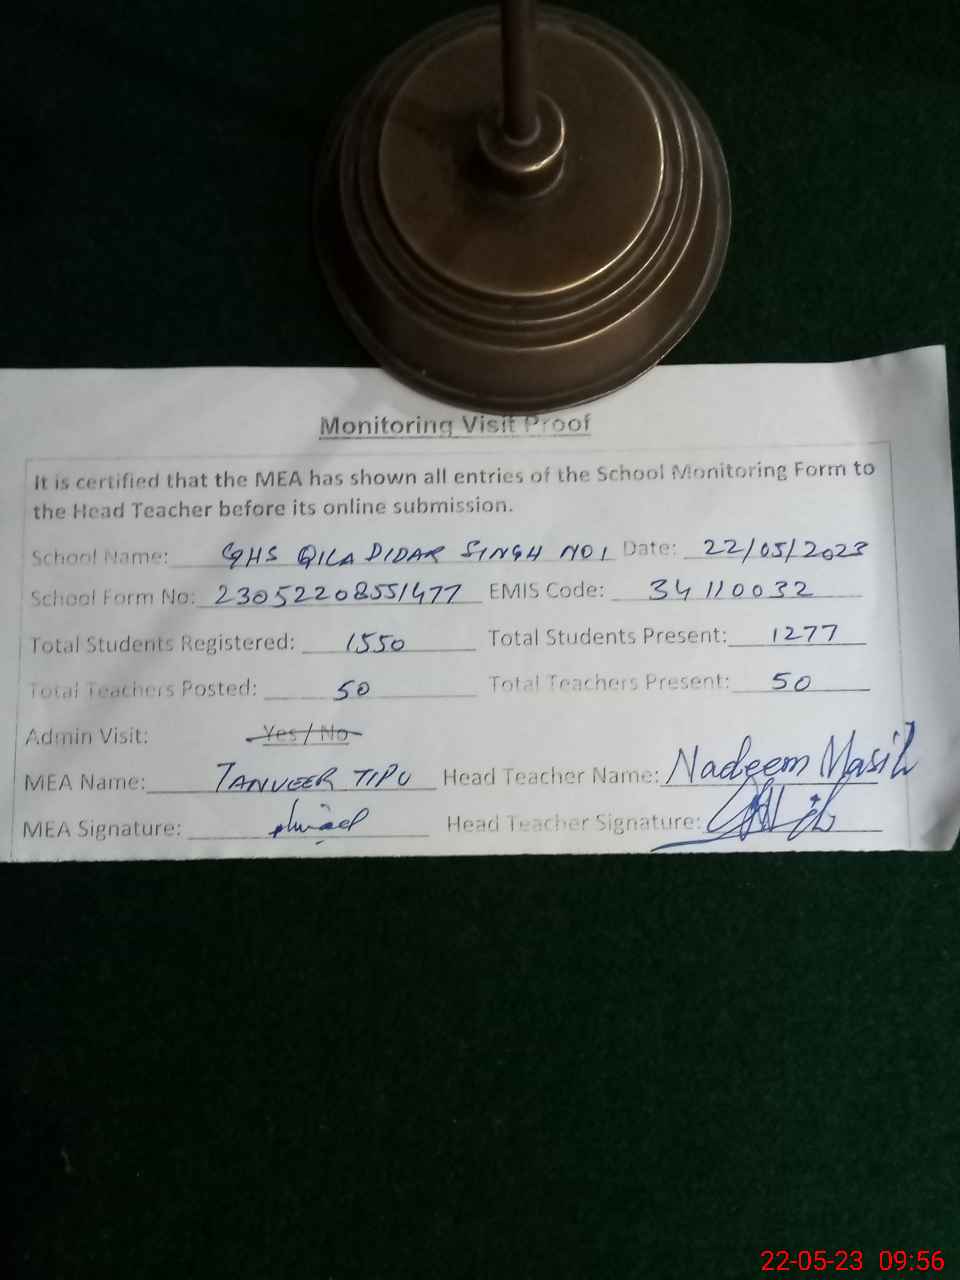 Monitoring Visit Proof
It is certified that the MEA has shown all entries of the School Monitoring Form to
the Head Teacher before its online submission.
School Name: GHS QILA DIDAR SINGH NO1 Date: 22/05/2023
School Form No: 23052208551477 EMIS Code: 34110032
Total Students Registered: 1550 Total Students Present: 1277
Total Teachers Posted: 50 Total Teachers Present: 50
Admin Visit: Yes / No
MEA Name: TANVEER TIPU Head Teacher Name: Nadeem Masih
MEA Signature: Head Teacher Signature:
22-05-23 09:56